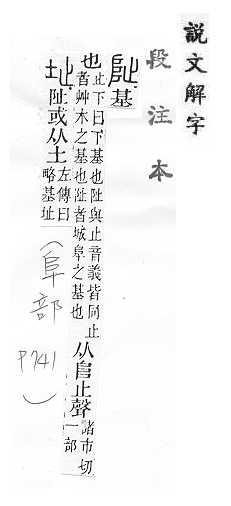 說文解字
段注本
阯基
也止下曰下基也阯與止音義皆同止
者艸木之基也阯者城阜之基也
从𨸏止聲諸市切
一部
址阯或从土左傳曰
略基址
（阜部
P741）